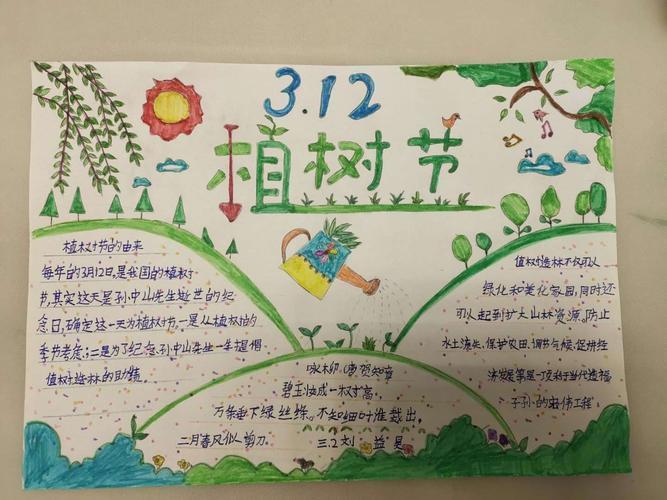 3.12
植树节
植树节的由来
每年的3月12日,是我国的植树
节,其实这天是孙中山先生逝世的纪
念日,确定这一天为植树节,一是从植树的
季节考虑;二是为了纪念孙中山先生一生提倡
植树造林的功绩。
咏柳 唐 贺知章
碧玉妆成一树高,
万条垂下绿丝绦。不知细叶谁裁出,
二月春风似剪刀。
三.2 刘益
植树造林不仅可以
绿化和美化家园,同时还
可以起到扩大山林资源、防止
水土流失、保护农田、调节气候、促进经
济发展等是一项利于当代造福
子孙的宏伟工程